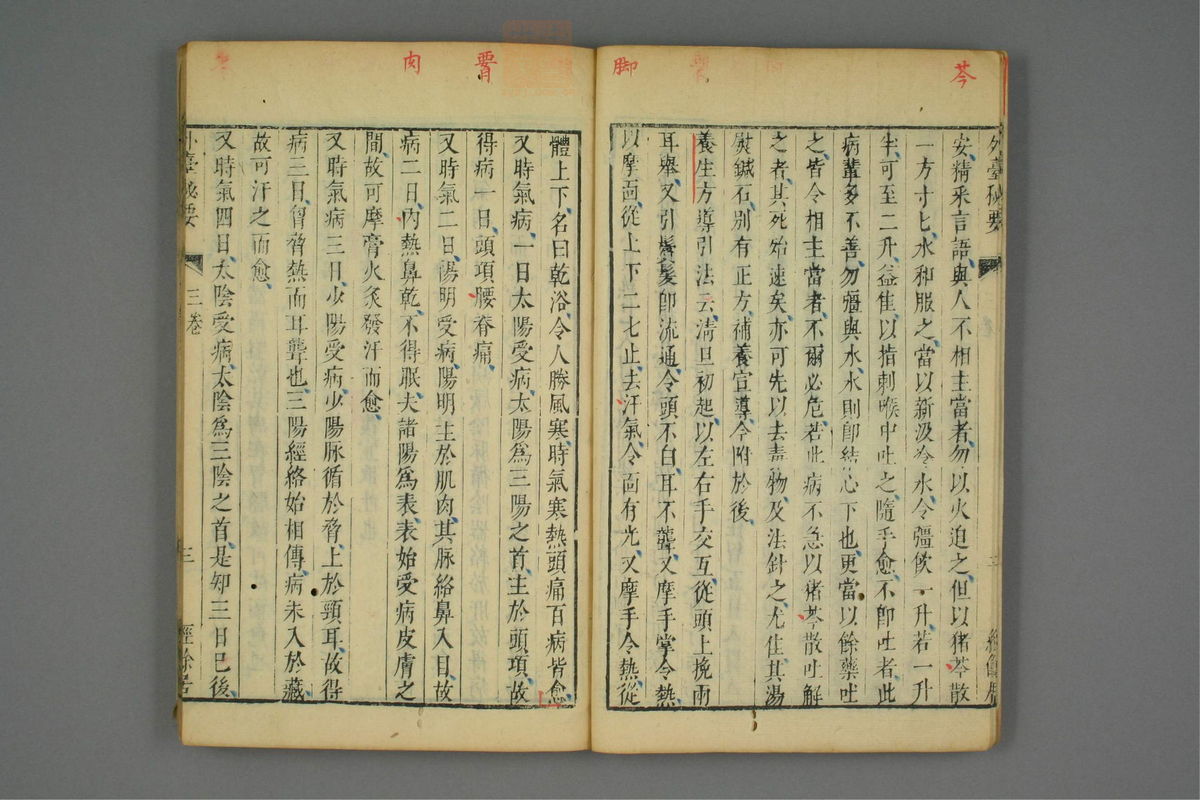 芩
脚
肉
外臺秘要
安精采言語與人不相主當者勿以火迫之但以猪苓散
一方寸匕水和服之當以新汲冷水令彊飲一升若一升
半可至二升益佳以指刺喉中吐之隨手愈不卽吐者此
病輩多不善勿彊與水水則卽結心下也更當以餘藥吐
之皆令相主當者不爾必危若此病不急以猪苓散吐解
之者其死殆速矣亦可先以去毒物及法針之尤佳其湯
熨鍼石別有正方補養宣導今附於後
養生方導引法云淸旦初起以左右手交互從頭上挽兩
耳舉又引鬢髮卽流通令頭不白耳不聾又摩手掌令熱
以摩面從上下二七止去汗氣令面有光又摩手令熱從
體上下名曰乾浴令人勝風寒時氣寒熱頭痛百病皆愈
又時氣病一日太陽受病太陽爲三陽之首主於頭項故
得病一日頭項腰脊痛
又時氣二日陽明受病陽明主於肌肉其脉絡鼻入目故
病二日內熱鼻乾不得眠夫諸陽爲表表始受病皮膚之
間故可摩膏火灸發汗而愈
又時氣病三日少陽受病少陽脉循於脅上於頸耳故得
病三日胷脅熱而耳聾也三陽經絡始相傳病未入於藏
故可汗之而愈
又時氣四日太陰受病太陰爲三陰之首是知三日已後
外臺秘要
三卷
三
經餘居